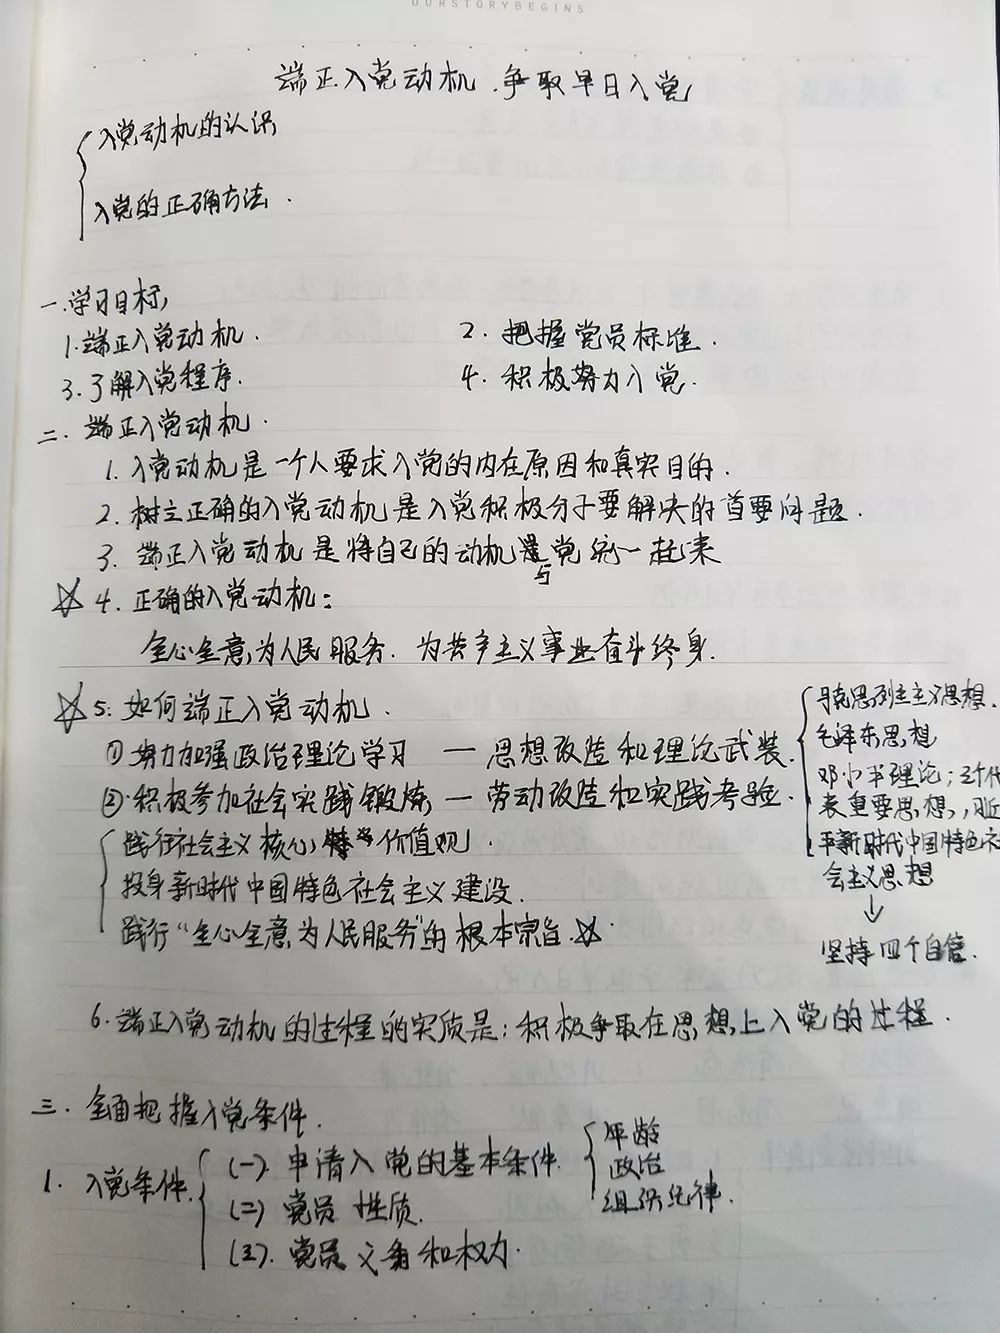 OURSTORYBEGINS
端正入党动机.争取早日入党
入党动机的认识
入党的正确方法.
一.学习目标
1.端正入党动机. 2.把握党员标准.
3.了解入党程序. 4.积极努力入党.
二.端正入党动机.
1.入党动机是一个人要求入党的内在原因和真实目的.
2.树立正确的入党动机是入党积极分子要解决的首要问题.
3.端正入党动机是将自己的动机与党统一起来
☆4.正确的入党动机:
全心全意为人民服务.为共产主义事业奋斗终身.
☆5.如何端正入党动机.
①努力加强政治理论学习 — 思想改造和理论武装.
马克思列主主义思想.
毛泽东思想
邓小平理论;三个代
表重要思想,,习近
平新时代中国特色社
会主义思想
↓
坚持四个自信.
②.积极参加社会实践锻炼, — 劳动改造和实践考验.
践行社会主义核心价值观.
投身新时代中国特色社会主义建设.
践行“全心全意为人民服务”的根本宗旨.☆.
6.端正入党动机的过程的实质是:积极争取在思想上入党的过程.
三.全面把握入党条件.
1.入党条件.
(一)申请入党的基本条件.
年龄
政治
组织纪律.
(二)党员性质.
(三).党员义务和权力.